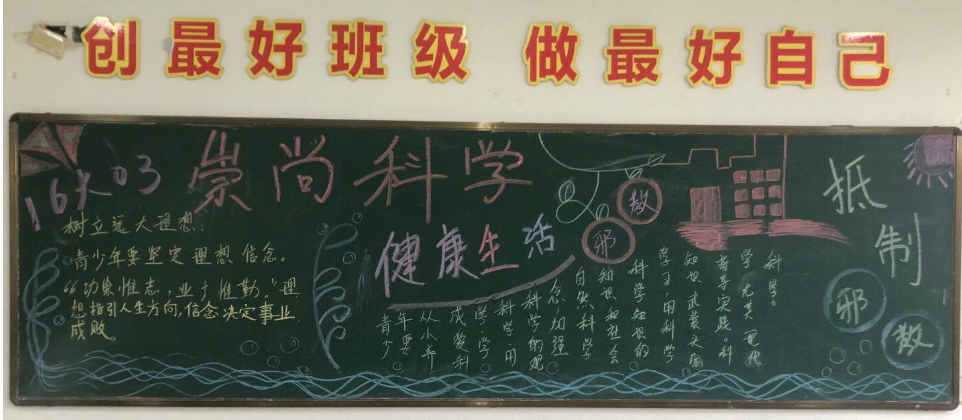 创最好班级 做最好自己
16大03
崇尚科学
健康生活
树立远大理想:
青少年要坚定理想信念。
“功崇惟志,业广惟勤。”理
想指引人生方向,信念决定事业
成败。
邪教
抵制
邪教
科学。
学尤其现代
者导实践。科
知识武装头脑
学习、用科学
科学知识的
知识和社会
自然科学
念,加强
科学的观
科学、用
学科学
成爱科
从小养
青少年要